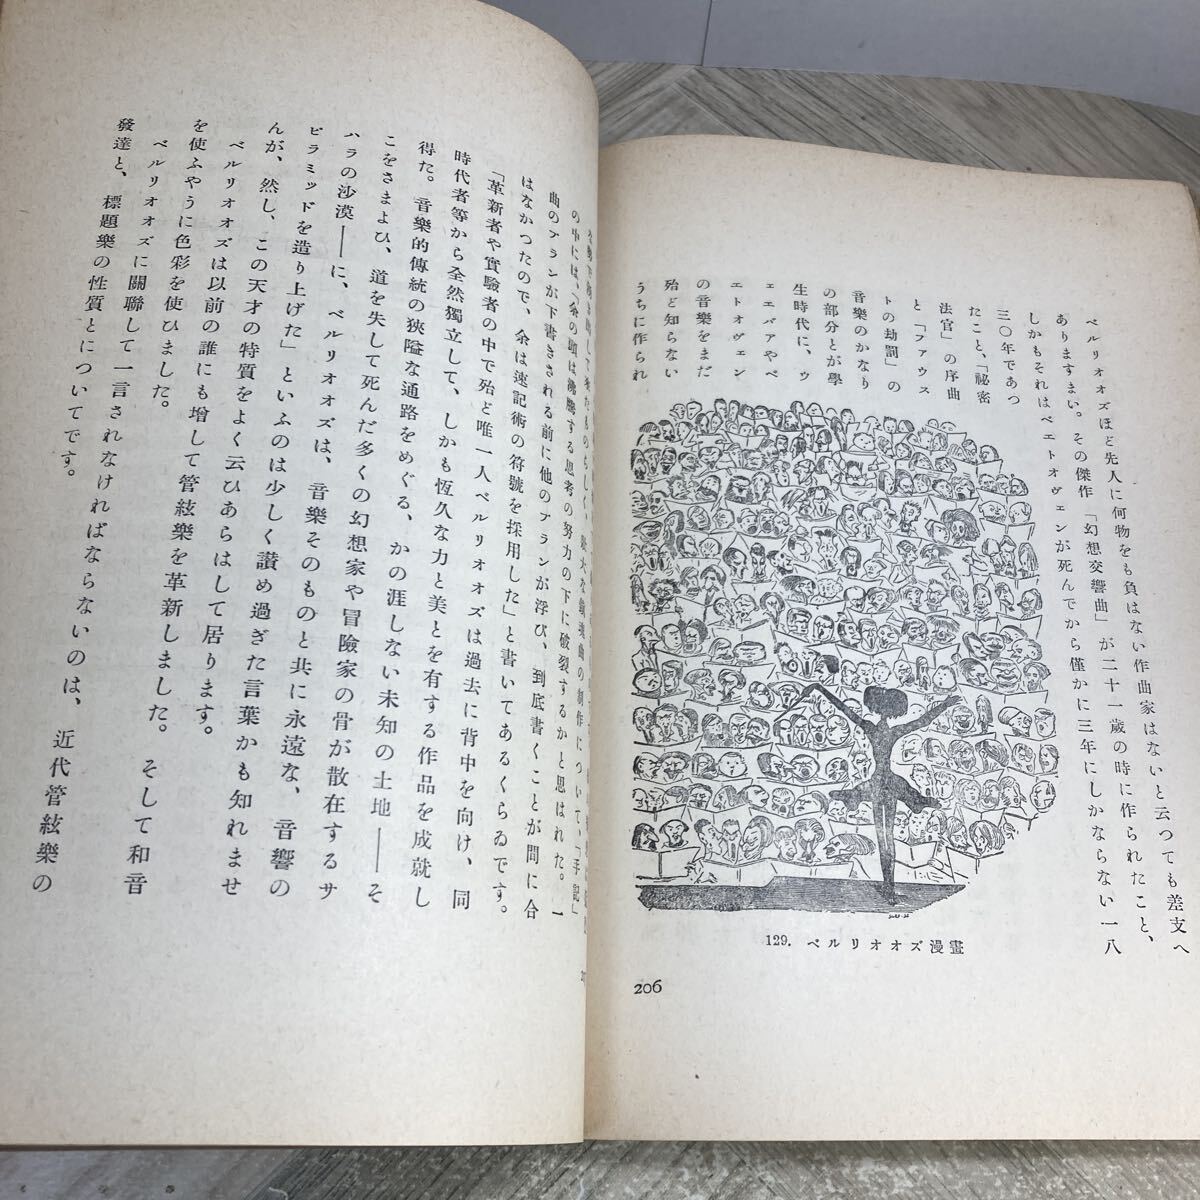 ベルリオオズほど先人に何物をも負はない作曲家はないと云つても差支へ
ありますまい。その傑作「幻想交響曲」が二十一歳の時に作られたこと、
しかもそれはベエトオヴェンが死んでから僅かに三年にしかならない一八
三〇年であつ
たこと、「祕密
法官」の序曲
と「ファウス
トの劫罰」の
音樂のかなり
の部分とが學
生時代に、ウ
エエバアやベ
エトオヴェン
の音樂をまだ
殆ど知らない
うちに作られ
129. ベルリオオズ漫畫
206
の中には、「余の頭は沸騰する思考の努力の下に破裂するかと思はれた。一
曲のプランが下書きされる前に他のプランが浮び、到底書くことが間に合
はなかつたので、余は速記術の符號を採用した」と書いてあるくらゐです。
「革新者や實驗者の中で殆ど唯一人ベルリオオズは過去に背中を向け、同
時代者等から全然獨立して、しかも恆久な力と美とを有する作品を成就し
得た。音樂的傳統の狹隘な通路をめぐる、かの涯しない未知の土地――そ
こをさまよひ、道を失して死んだ多くの幻想家や冒險家の骨が散在するサ
ハラの沙漠――に、ベルリオオズは、音樂そのものと共に永遠な、音響の
ピラミッドを造り上げた」といふのは少しく讃め過ぎた言葉かも知れませ
んが、然し、この天才の特質をよく云ひあらはして居ります。
ベルリオオズは以前の誰にも增して管絃樂を革新しました。そして和音
を使ふやうに色彩を使ひました。
ベルリオオズに關聯して一言されなければならないのは、近代管絃樂の
發達と、標題樂の性質とについてです。